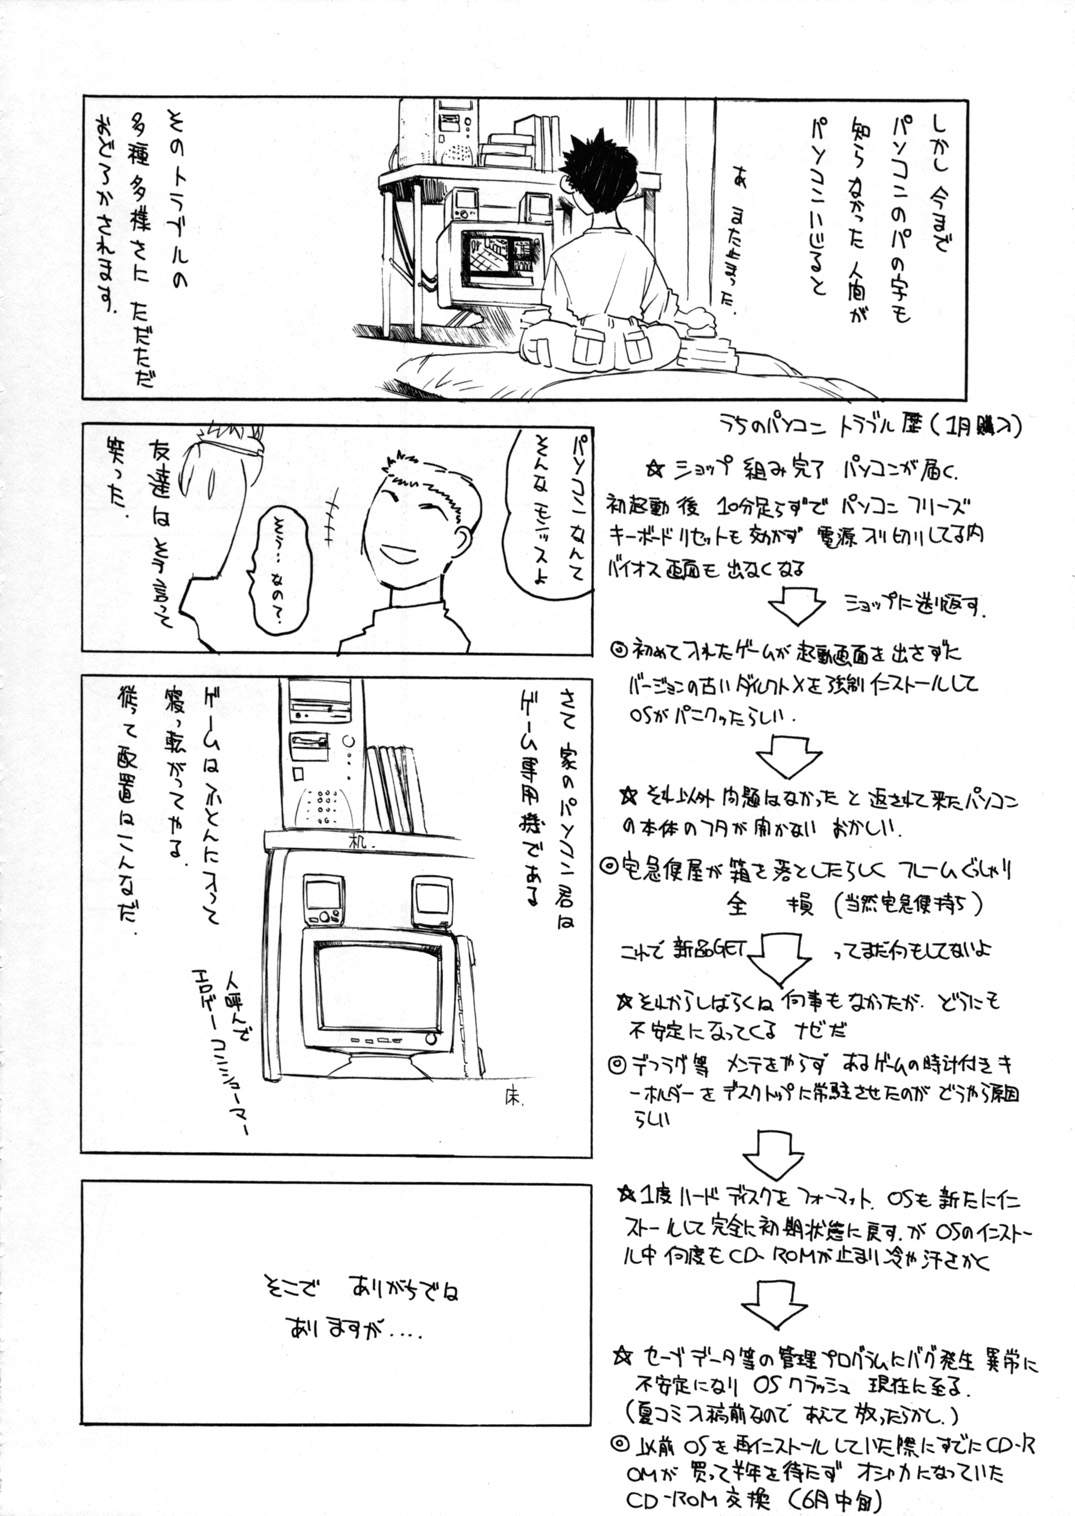 しかし 今まで
パソコンのパの字も
知らなかった 人間が
パソコンにふれると
あ また止まった.
そのトラブルの
多種多様さに ただただ
おどろかされます.
うちのパソコン トラブル歴 (1月購入)
☆ ショップ 組み完了 パソコンが届く.
初起動後 10分足らずで パソコン フリーズ
キーボードリセットも効かず 電源入り切りしてる内
バイオス画面も 出なくなる
ショップに送り返す.
◎ 初めて入れたゲームが 起動画面を出さずに
バージョンの古いダイレクトXを強制インストールして
OSがパニクったらしい.
☆ それ以外 問題はなかった と返されて来たパソコン
の本体のフタが 開かない おかしい.
◎ 宅急便屋が 箱を落としたらしく フレームぐしゃり
全 損 (当然宅急便持ち)
これで新品GET
ってまだ何もしてないよ
☆ それからしばらくは 何事もなかったが. どうにも
不安定になってくる ナゼだ
◎ デフラグ等 メンテをやらず あるゲームの時計付きキ
ーホルダーをデスクトップに常駐させたのが どうやら原因
らしい
☆ 1度ハードディスクをフォーマット. OSも新たにイン
ストールして完全に初期状態に戻す. が OSのインストー
ル中 何度もCD-ROMが止まり冷や汗さかく
☆ セーブデータ等の管理プログラムにバグ発生 異常に
不安定になり OSクラッシュ 現在に至る.
(夏コミ入稿前なので あえて放ったらかし.)
◎ 以前OSを再インストールしていた際にすでにCD-R
OMが 買って半年を待たず オシャカになっていた
CD-ROM交換 (6月中旬)
パソコンなんて
そんなモンっスよ
そう…なの?
友達は そう言って
笑った.
さて 家のパソコン君は
ゲーム専用機である
ゲームは ふとんに入って
寝っ転がってやる.
従って配置はこんなだ.
人呼んで
エロゲーコンショーマー
机.
床.
そこで ありがちでは
ありますが....